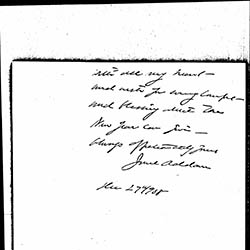 with all my heart —
and wish for every comfort
and blessing that the
New Year can give —
Always affectionately yours
Jane Addams
Dec 27